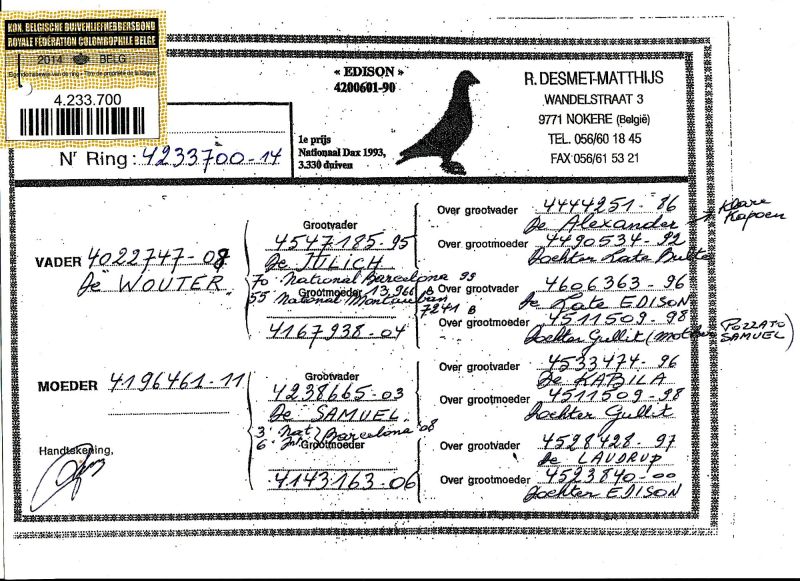 KON. BELGISCHE DUIVENLIEFHEBBERSBOND
ROYALE FÉDÉRATION COLOMBOPHILE BELGE
2014 BELG
4.233.700
Nr Ring : 4233700-14
« EDISON »
4200601-90
1e prijs
Nationaal Dax 1993,
3.330 duiven
R. DESMET-MATTHIJS
WANDELSTRAAT 3
9771 NOKERE (België)
TEL. 056/60 18 45
FAX 056/61 53 21
VADER 4022747-08
De WOUTER
Grootvader
4547185-95
De JULICH
70 National Barcelona 99
13,966 B
Grootmoeder
55 National Montauban
7241 B
4167938-04
Over grootvader 4444251-86
De Alexander → Klare Kapoen
Over grootmoeder 4490534-92
Dochter Late
Over grootvader 4606363-96
De Late EDISON
Over grootmoeder 4511509-98
Dochter Gullit (mother POZZATO SAMUEL)
MOEDER 4196461-11
Grootvader
4238665-03
De SAMUEL
3. Nat. Barcelona 08
6.
Grootmoeder
4143163-06
Over grootvader 4533474-96
De KABILA
Over grootmoeder 4511509-98
Dochter Gullit
Over grootvader 4528428-97
De LAUDRUP
Over grootmoeder 4523840-00
Dochter EDISON
Handtekening,